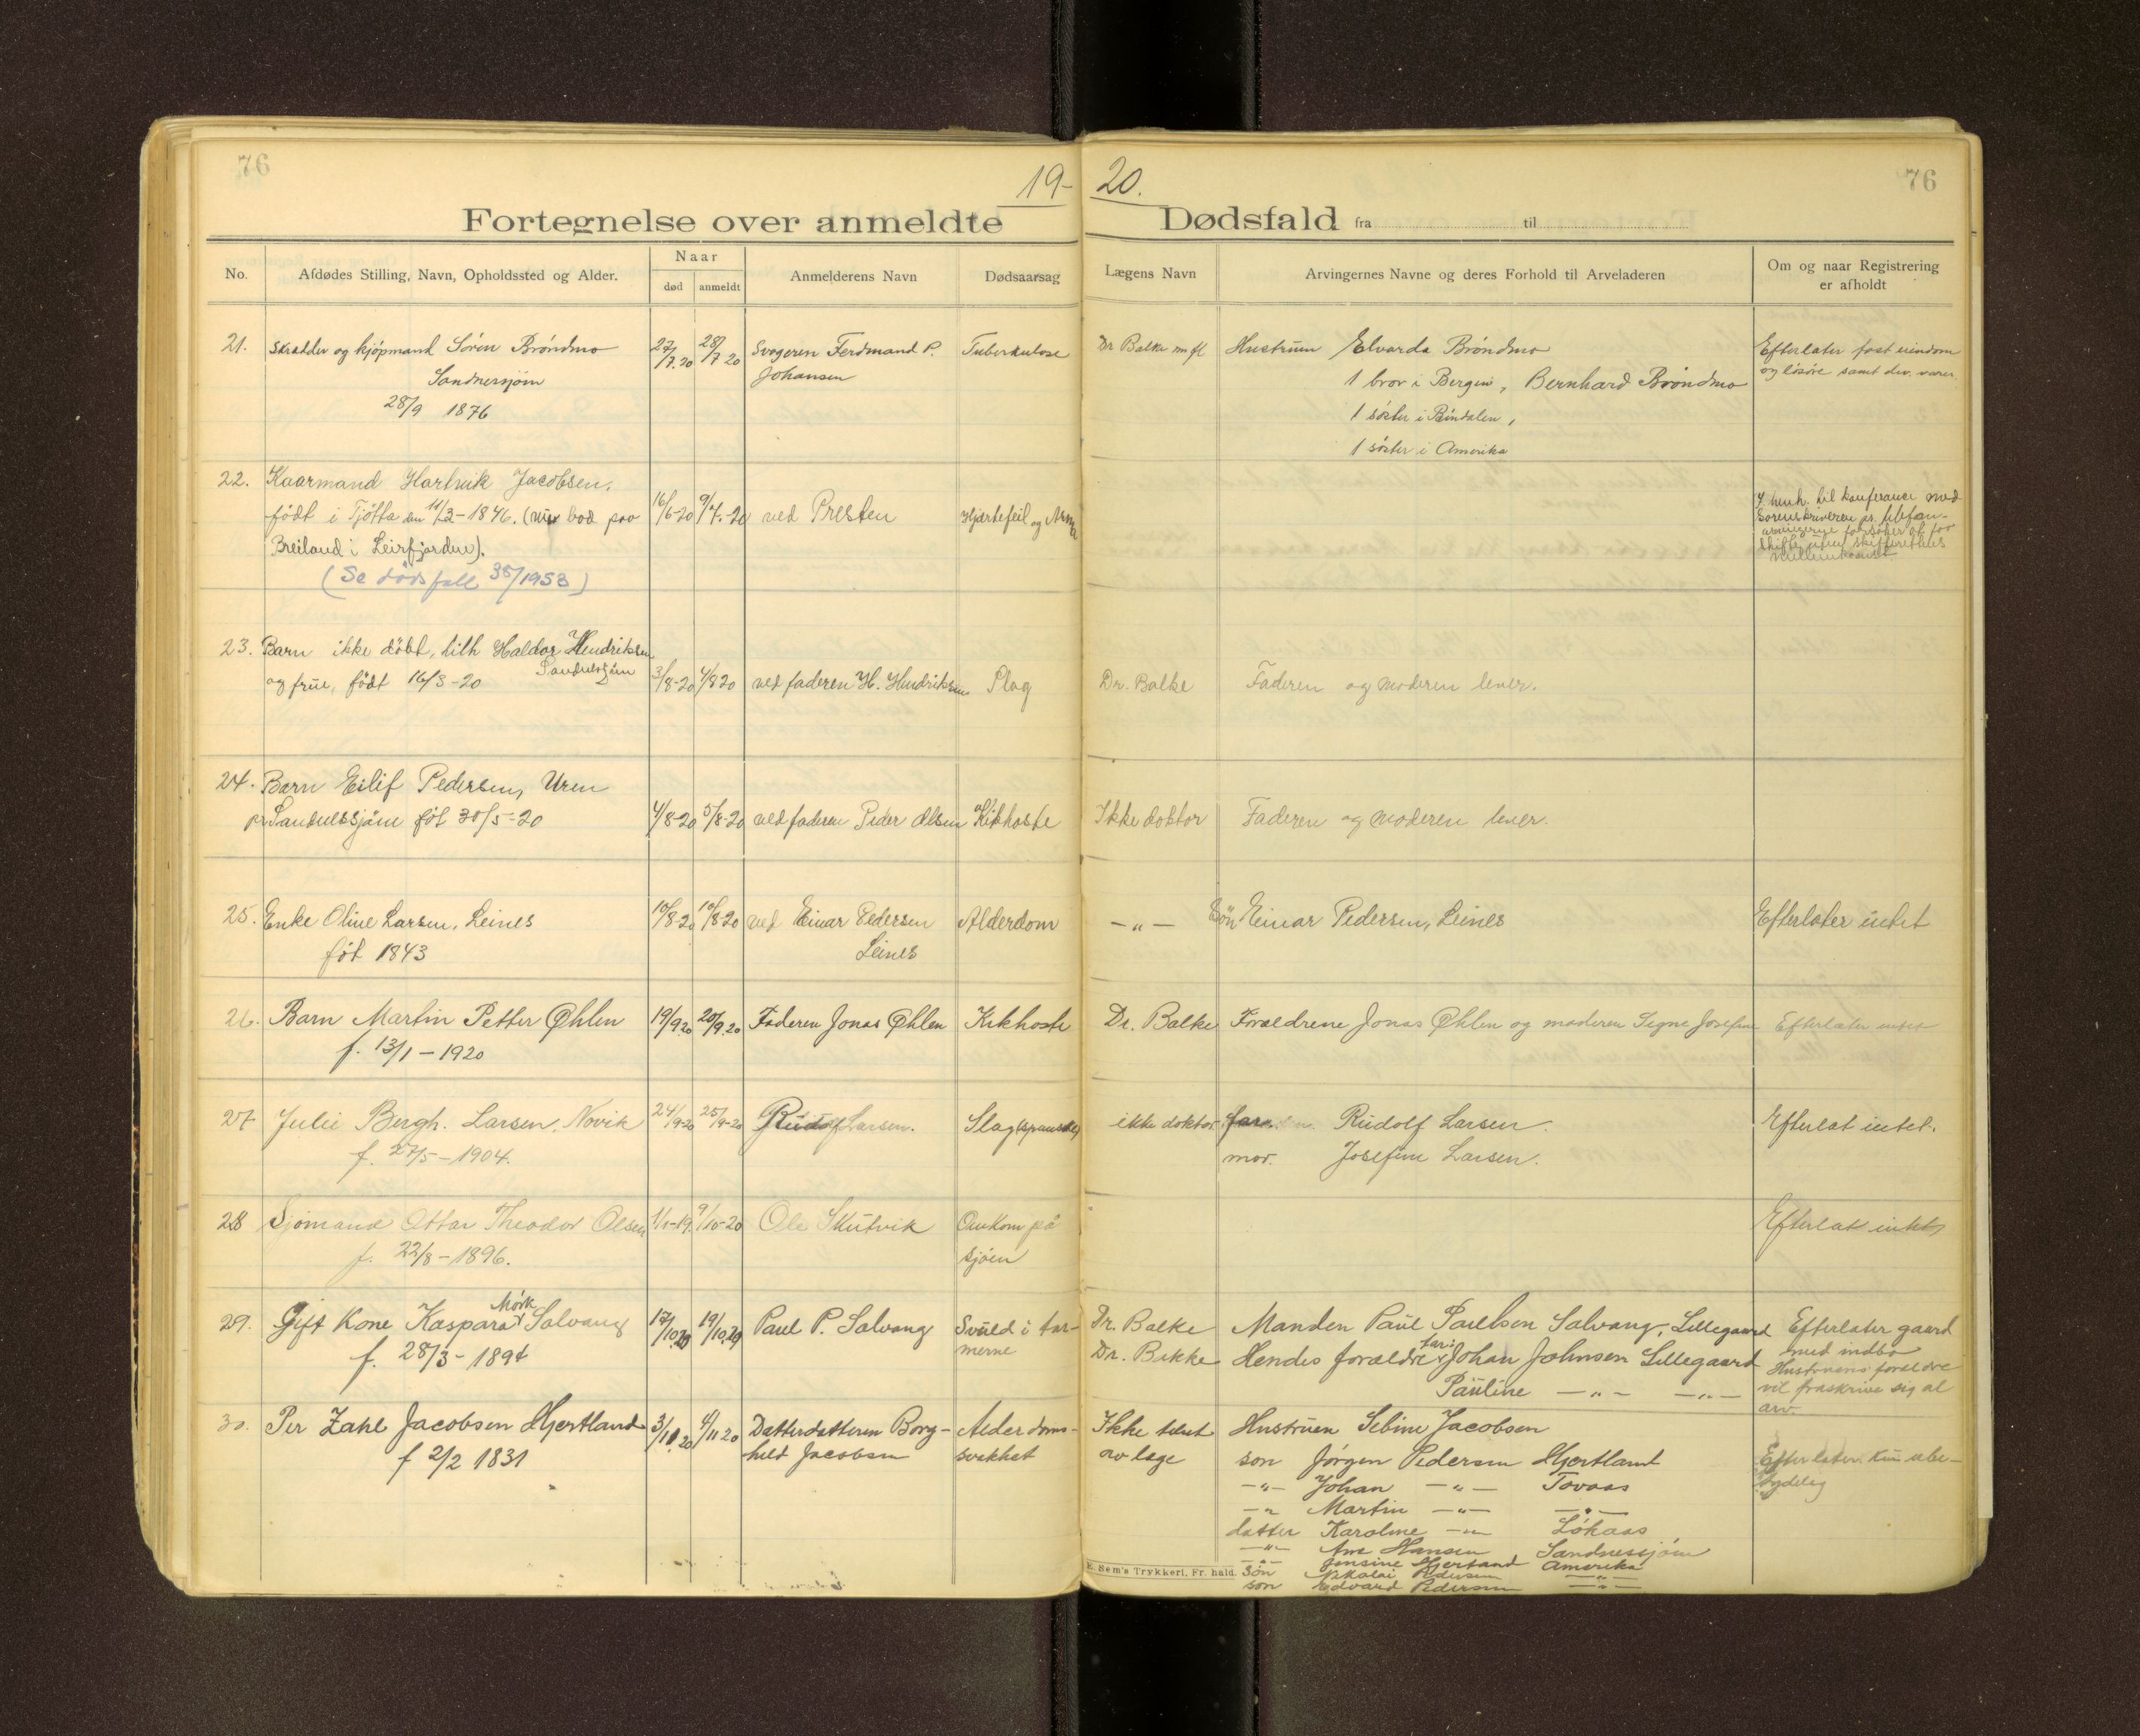 76
19-20.
76
Fortegnelse over anmeldte Dødsfald fra til
No. Afdødes Stilling, Navn, Opholdssted og Alder. Naar død anmeldt Anmelderens Navn Dødsaarsag Lægens Navn Arvingernes Navne og deres Forhold til Arveladeren Om og naar Registrering er afholdt
21. Skrædder og kjøpmand Sören Bröndmo 27/7.20 28/7 20 Svogeren Ferdinand P. Tuberkulose Dr Balke m fl Hustruen Elvarda Bröndmo Efterlater fast eiendom
Sandnessjöen Johansen 1 bror i Bergen, Bernhard Bröndmo og lösöre samt div. varer.
28/9 1876 1 söster i Bindalen,
1 söster i Amerika
22. Kaarmand Hartvik Jacobsen.
födt i Tjötta den 11/3-1846. (bod paa 16/6-20 9/7.-20 ved Presten Hjertefeil og I henh. til konferance med
Breiland i Leirfjorden). Sorenskriveren pr. telefon-
(Se dödsfall 38/1953)
23. Barn ikke döbt, tilh Haldor Hendriksen
Sandnessjöen
og frue, födt 16/3-20 3/8-20 4/8 20 ved faderen H. Hendriksen Slag Dr. Balke Faderen og moderen lever.
24. Barn Eilif Pedersen, Uren
pr Sandnessjöen föt 30/5-20 4/8-20 5/8-20 ved faderen Peder Olsen Kikhoste Ikke doktor Faderen og moderen lever.
25. Enke Oline Larsen, Leines 10/8-20 10/8-20 ved Einar Pedersen Alderdom -"- Sön Einar Pedersen, Leines Efterlater intet
föt 1843 Leines
26. Barn Martin Petter Øhlen 19/9.20 20/9.20 Faderen Jonas Øhlen Kikhoste Dr. Balke Forældrene Jonas Øhlen og moderen Signe Josefine Efterlater intet
f. 13/1-1920
27 Julie Bergh. Larsen, Novik 24/9-20 25/9-20 Rudolf Larsen. Slag ikke doktor far. Rudolf Larsen. Efterlat intet.
f. 27/5-1904. mor. Josefine Larsen.
28 Sjömand Ottar Theodor Olsen 1/1-19. 9/10-20 Ole Skutvik Omkom på Efterlat intet
f. 22/8-1896. sjöen
29. Gift Kone Kaspara Mörk Solvang 17/10.20 19/10.20 Paul P. Solvang Svuld i tar- Dr. Balke Manden Paul Paulsen Solvang, Lillegaard Efterlater gaard
f. 28/3-1894 merne Dr. Bakke Hendes forældre far: Johan Johnsen Lillegaard med indbo
Pauline -"- -"- Hustruens forældre
vil fraskrive sig al
arv
30. Per Zahl Jacobsen Hjertland 3/11.20 4/11 20 Datterdatteren Borg- Alderdoms- Ikke tilset Hustruen Sebine Jacobsen
f 2/2 1831 hild Jacobsen svekket av læge son Jörgen Pedersen Hjertland Efterlater kun ube-
-"- Johan -"- Tovaas tydelig
-"- Martin -"- -"-
datter Karoline -"- Lökaas
-"- Ane Hansen Sandnessjöen
-"- Jensine Hjertland Amerika
E. Sem's Trykkeri, Fr. hald. Sön Nikolai Pedersen -"-
son Edvard Pedersen -"-